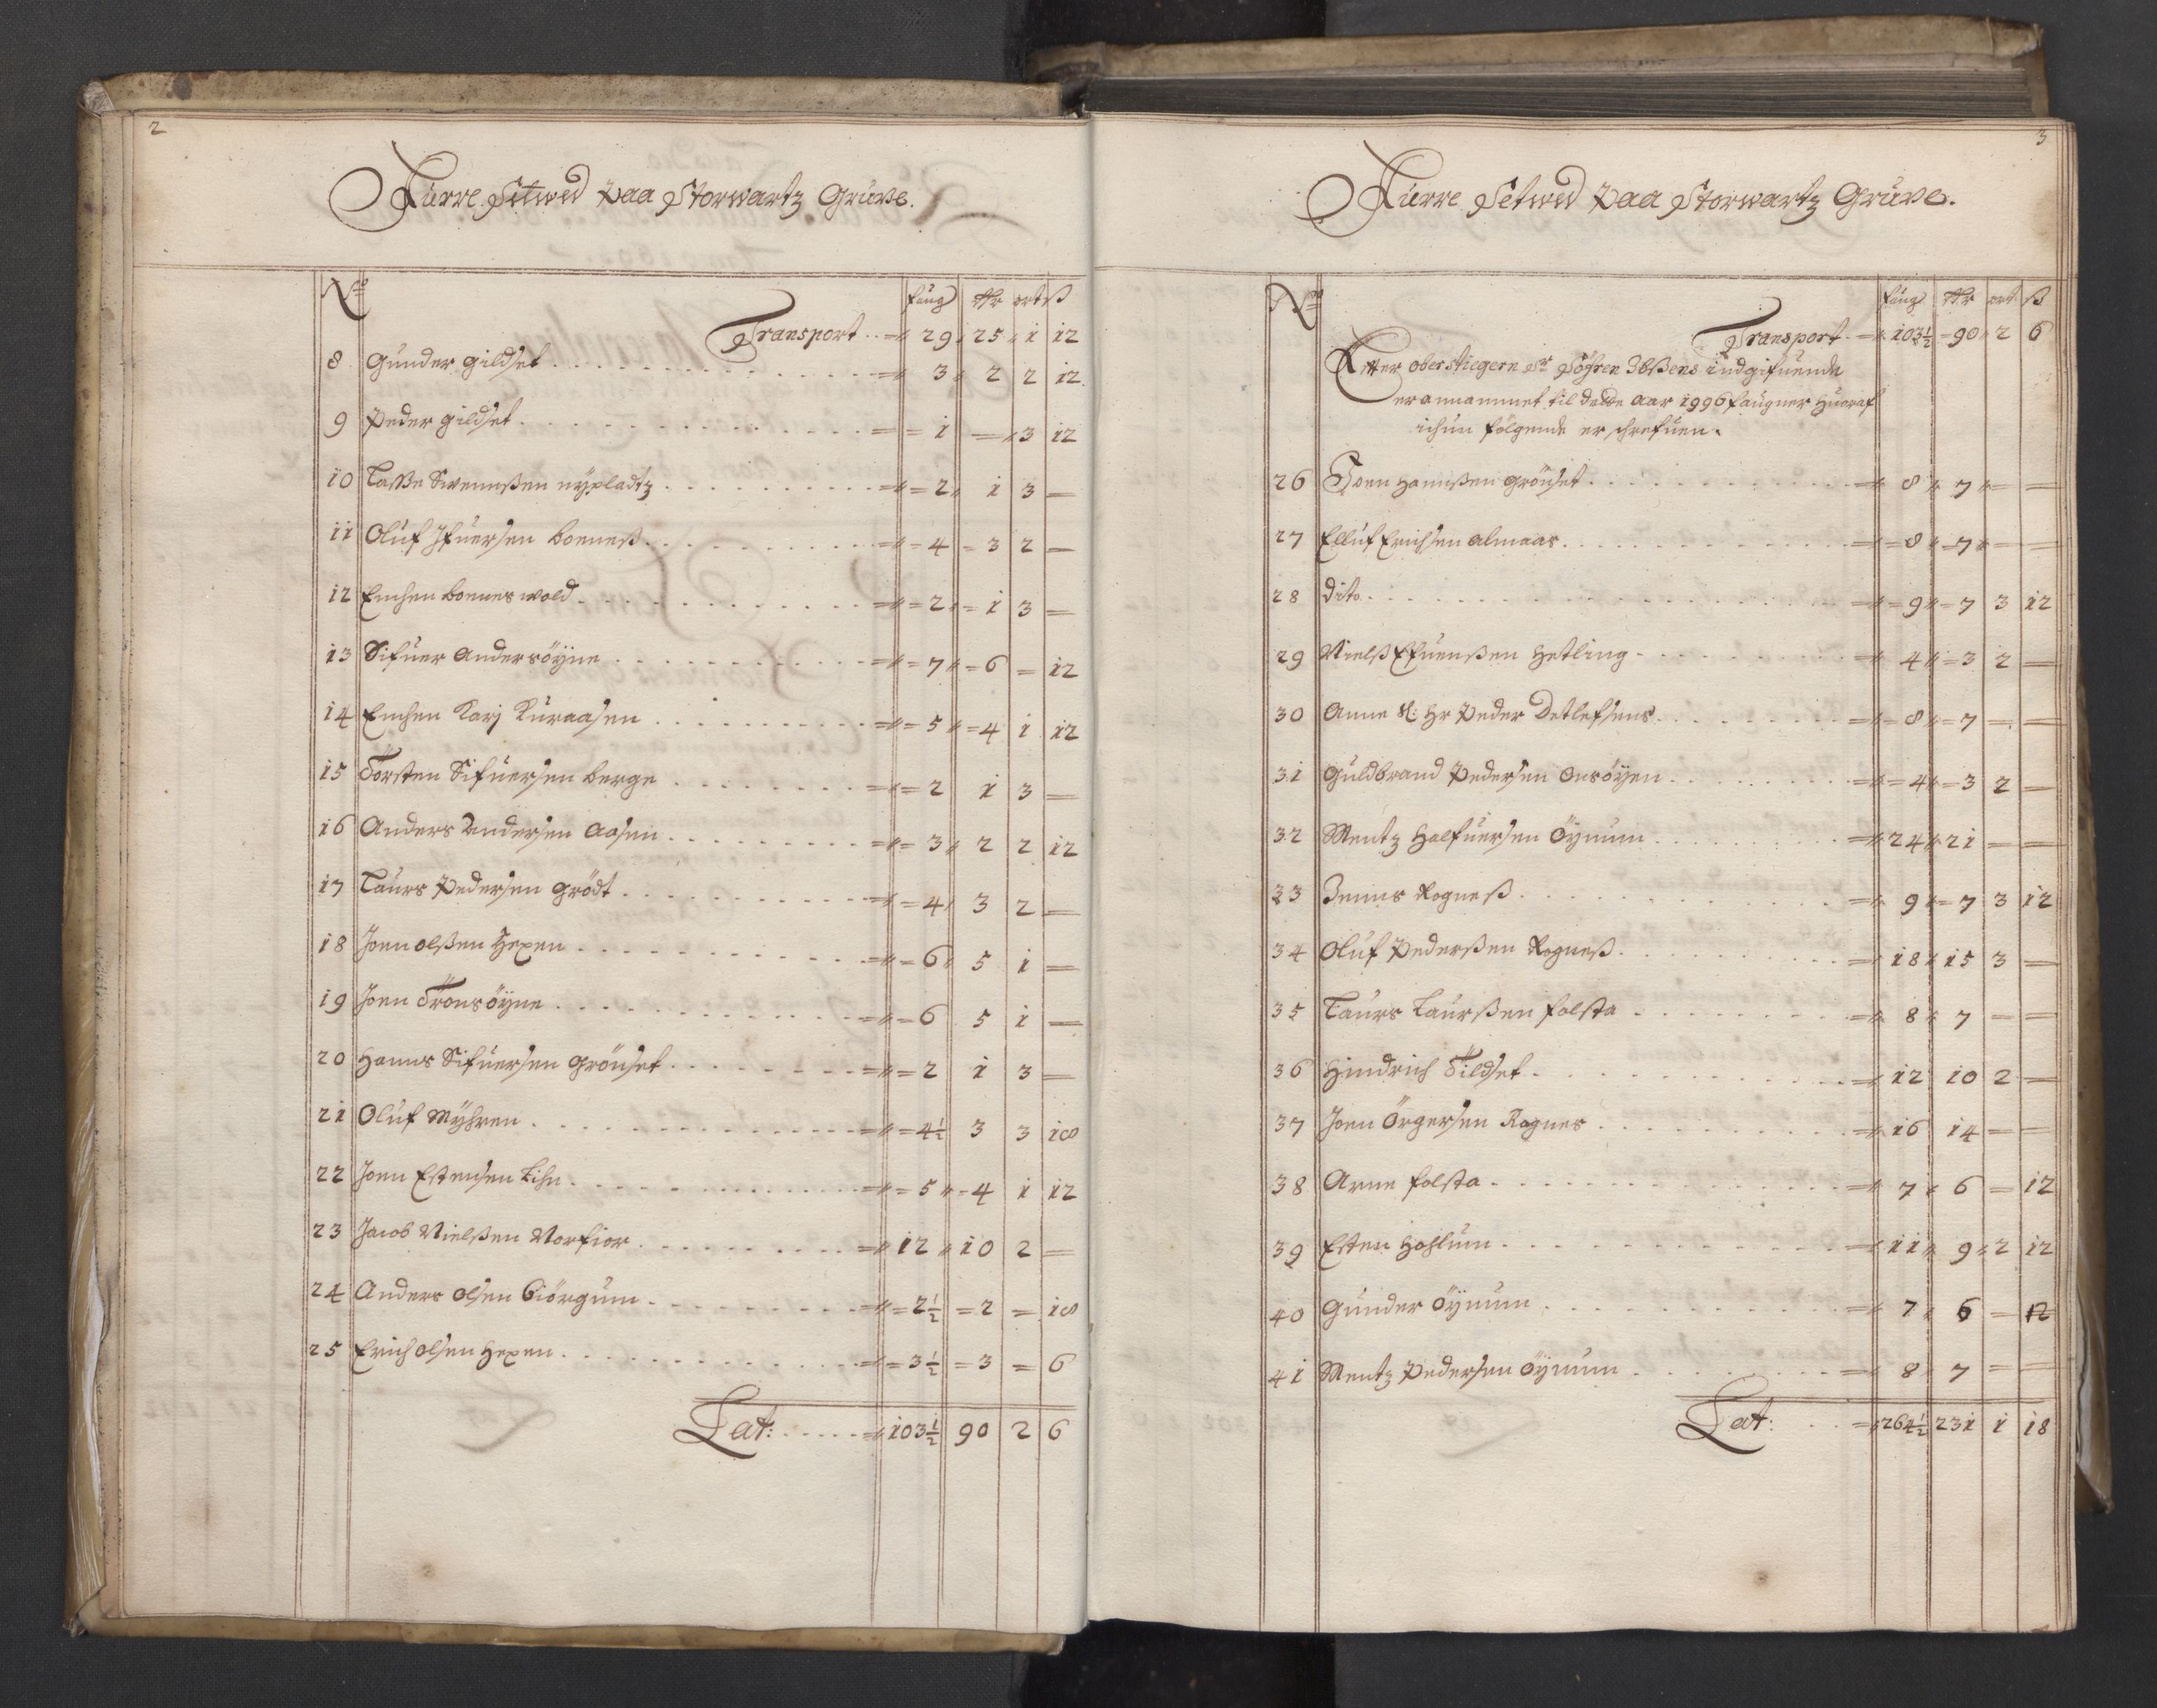 2
Furre Setwed paa Storwartz Gruve.
No faug Rr ort ß
Transport .. 29 25 1 12
8 Gunder Gildset 3 2 2 12
9 Peder Gildset 1 — 3 12
10 Lasse Swennßen nÿpladtz 2 1 3 —
11 Oluf Ifuersen boeneß 4 3 2 —
12 Enchen boenes wold 2 1 3 —
13 Sifuer andersöÿne 7 6 — 12
14 Enchen Karj Kuraasen 5 4 1 12
15 Törsten Sifuersen berge 2 1 3 —
16 Anders Andersen Aasen 3 2 2 12
17 Laurs Pedersen Grödt 4 3 2 —
18 Joen olßen Hexen 6 5 1 —
19 Joen Tronsöÿne 6 5 1 —
20 Hanns Sifuersen Grönset 2 1 3 —
21 Oluf Mÿhren 4½ 3 3 18
22 Joen Estensen Lihn 5 4 1 12
23 Jacob Nielßen Norfior 12 10 2 —
24 Anders olsen Giörgum 2½ 2 — 18
25 Erich olsen Hexen 3½ 3 — 6
Lat: 103½ 90 2 6
3
Furre Setwed paa Storwartz Gruve.
No faug Rr ort ß
Transport 103½ 90 2 6
Efter oberstiegern Sr Söfren Ibßens indgifuende
er annammet til dette aar 1996 faugner huoraf
ichun fölgende er schrefuen.
26 Joen Hannßen Grönset 8 7 — —
27 Elluf Erichsen Almaas 8 7 — —
28 dito 9 7 3 12
29 Nielß Efuenßen Hetling 4 3 2 —
30 Anne Sl: Hr Peder Detlefsens 8 7 — —
31 Guldbrand Pedersen Onsöÿen 4 3 2 —
32 Mentz Halfuersen Öÿnum 24 21 — —
33 Jenns Rogneß 9 7 3 12
34 Oluf Pederßen Rogneß 18 15 3 —
35 Laurs Laurßen folsta 8 7 — —
36 Hindrich Tildset 12 10 2 —
37 Joen Örgersen Rognes 16 14 — —
38 Arne folsta 7 6 — 12
39 Esten Hohlum 11 9 2 12
40 Gunder Öÿnum 7 6 — 12
41 Mentz Pedersen Öÿnum 8 7 — —
Lat: 264½ 231 1 18